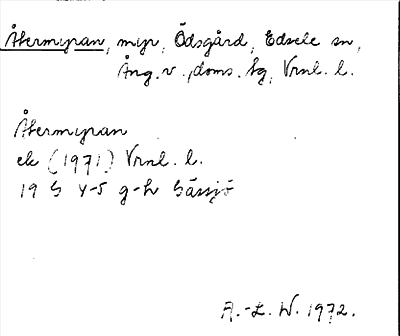 Åkermyran, myr, Ödsgård, Edsele sn,
Ång. v., doms. sg, Vrnl. l.
Åkermyran
ek (1971) Vrnl. l.
19 G 4-5 g-h Gåssjö
A.-L. W. 1972.